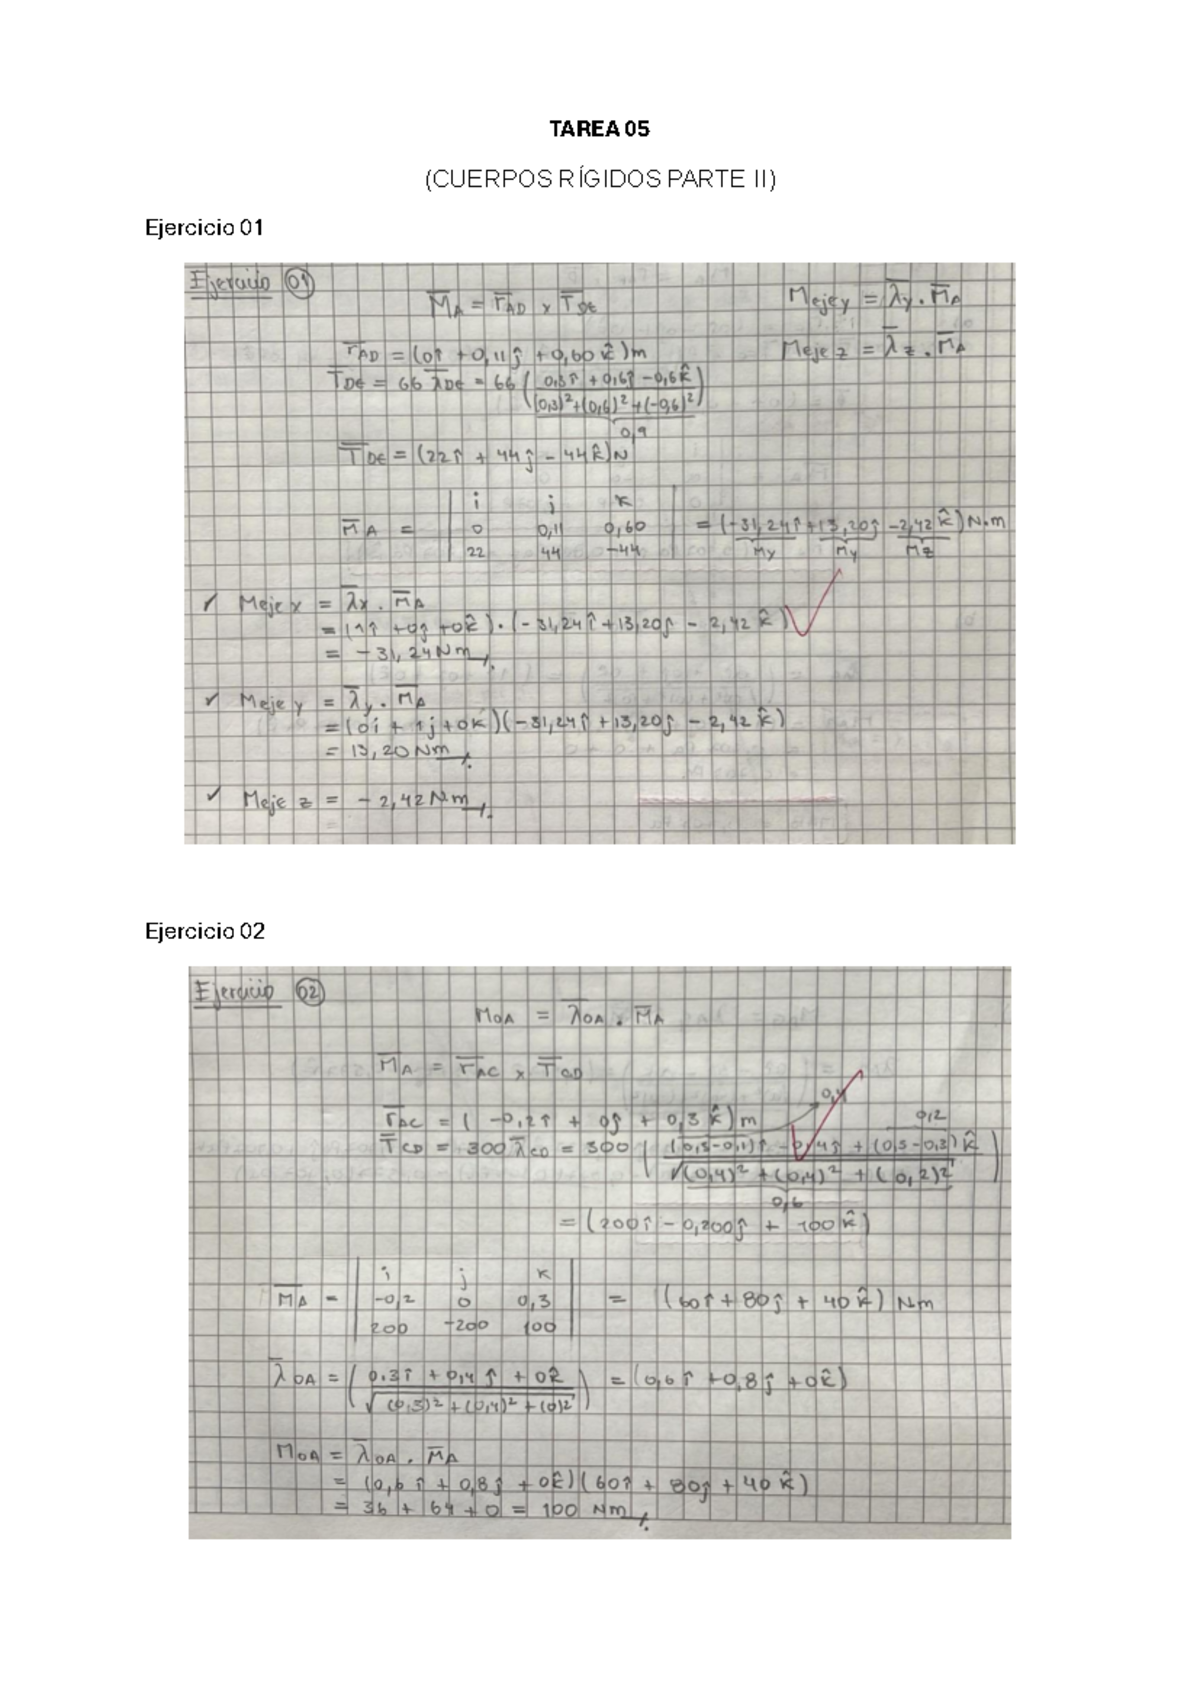 TAREA 05
(CUERPOS RÍGIDOS PARTE II)
Ejercicio 01
Ejercicio 01
M̅A = r̅AD x T̅DE
Meje y = λ̅y . M̅A
Meje z = λ̅z . M̅A
r̅AD = (0î + 0,11ĵ + 0,60 k̂)m
T̅DE = 66 λ̅DE = 66 ( 0,3î + 0,6ĵ - 0,6k̂ )
(0,3)² + (0,6)² + (-0,6)²
0,9
T̅DE = (22î + 44ĵ - 44k̂)N
i j k
M̅A = 0 0,11 0,60 = (-31,24î + 13,20ĵ - 2,42 k̂) N.m
22 44 -44 My My Mz
✓ Meje x = λ̅x . M̅A
= (1î + 0ĵ + 0k̂) . (-31,24î + 13,20ĵ - 2,42 k̂)
= -31,24 Nm
✓ Meje y = λ̅y . M̅A
= (0i + 1j + 0k)(-31,24î + 13,20ĵ - 2,42 k̂)
= 13,20 Nm
✓ Meje z = -2,42 Nm
Ejercicio 02
Ejercicio 02
MOA = λ̅OA . M̅A
M̅A = r̅AC x T̅CD
0,4
r̅AC = ( -0,2î + 0ĵ + 0,3 k̂) m
0,2
T̅CD = 300 λ̅CD = 300 ( (0,5-0,1)î - 0,4ĵ + (0,5-0,3) k̂ )
√(0,4)² + (0,4)² + (0,2)²
0,6
= (200î - 0,200ĵ + 100 k̂)
i j k
M̅A = -0,2 0 0,3 = (60î + 80ĵ + 40 k̂) Nm
200 -200 100
λ̅OA = ( 0.3î + 0,4 ĵ + 0k̂ ) = (0,6î + 0,8ĵ + 0k̂)
√(0,3)² + (0,4)² + (0)²
MOA = λ̅OA . M̅A
= (0,6 î + 0,8ĵ + 0k̂)(60î + 80ĵ + 40 k̂)
= 36 + 64 + 0 = 100 Nm